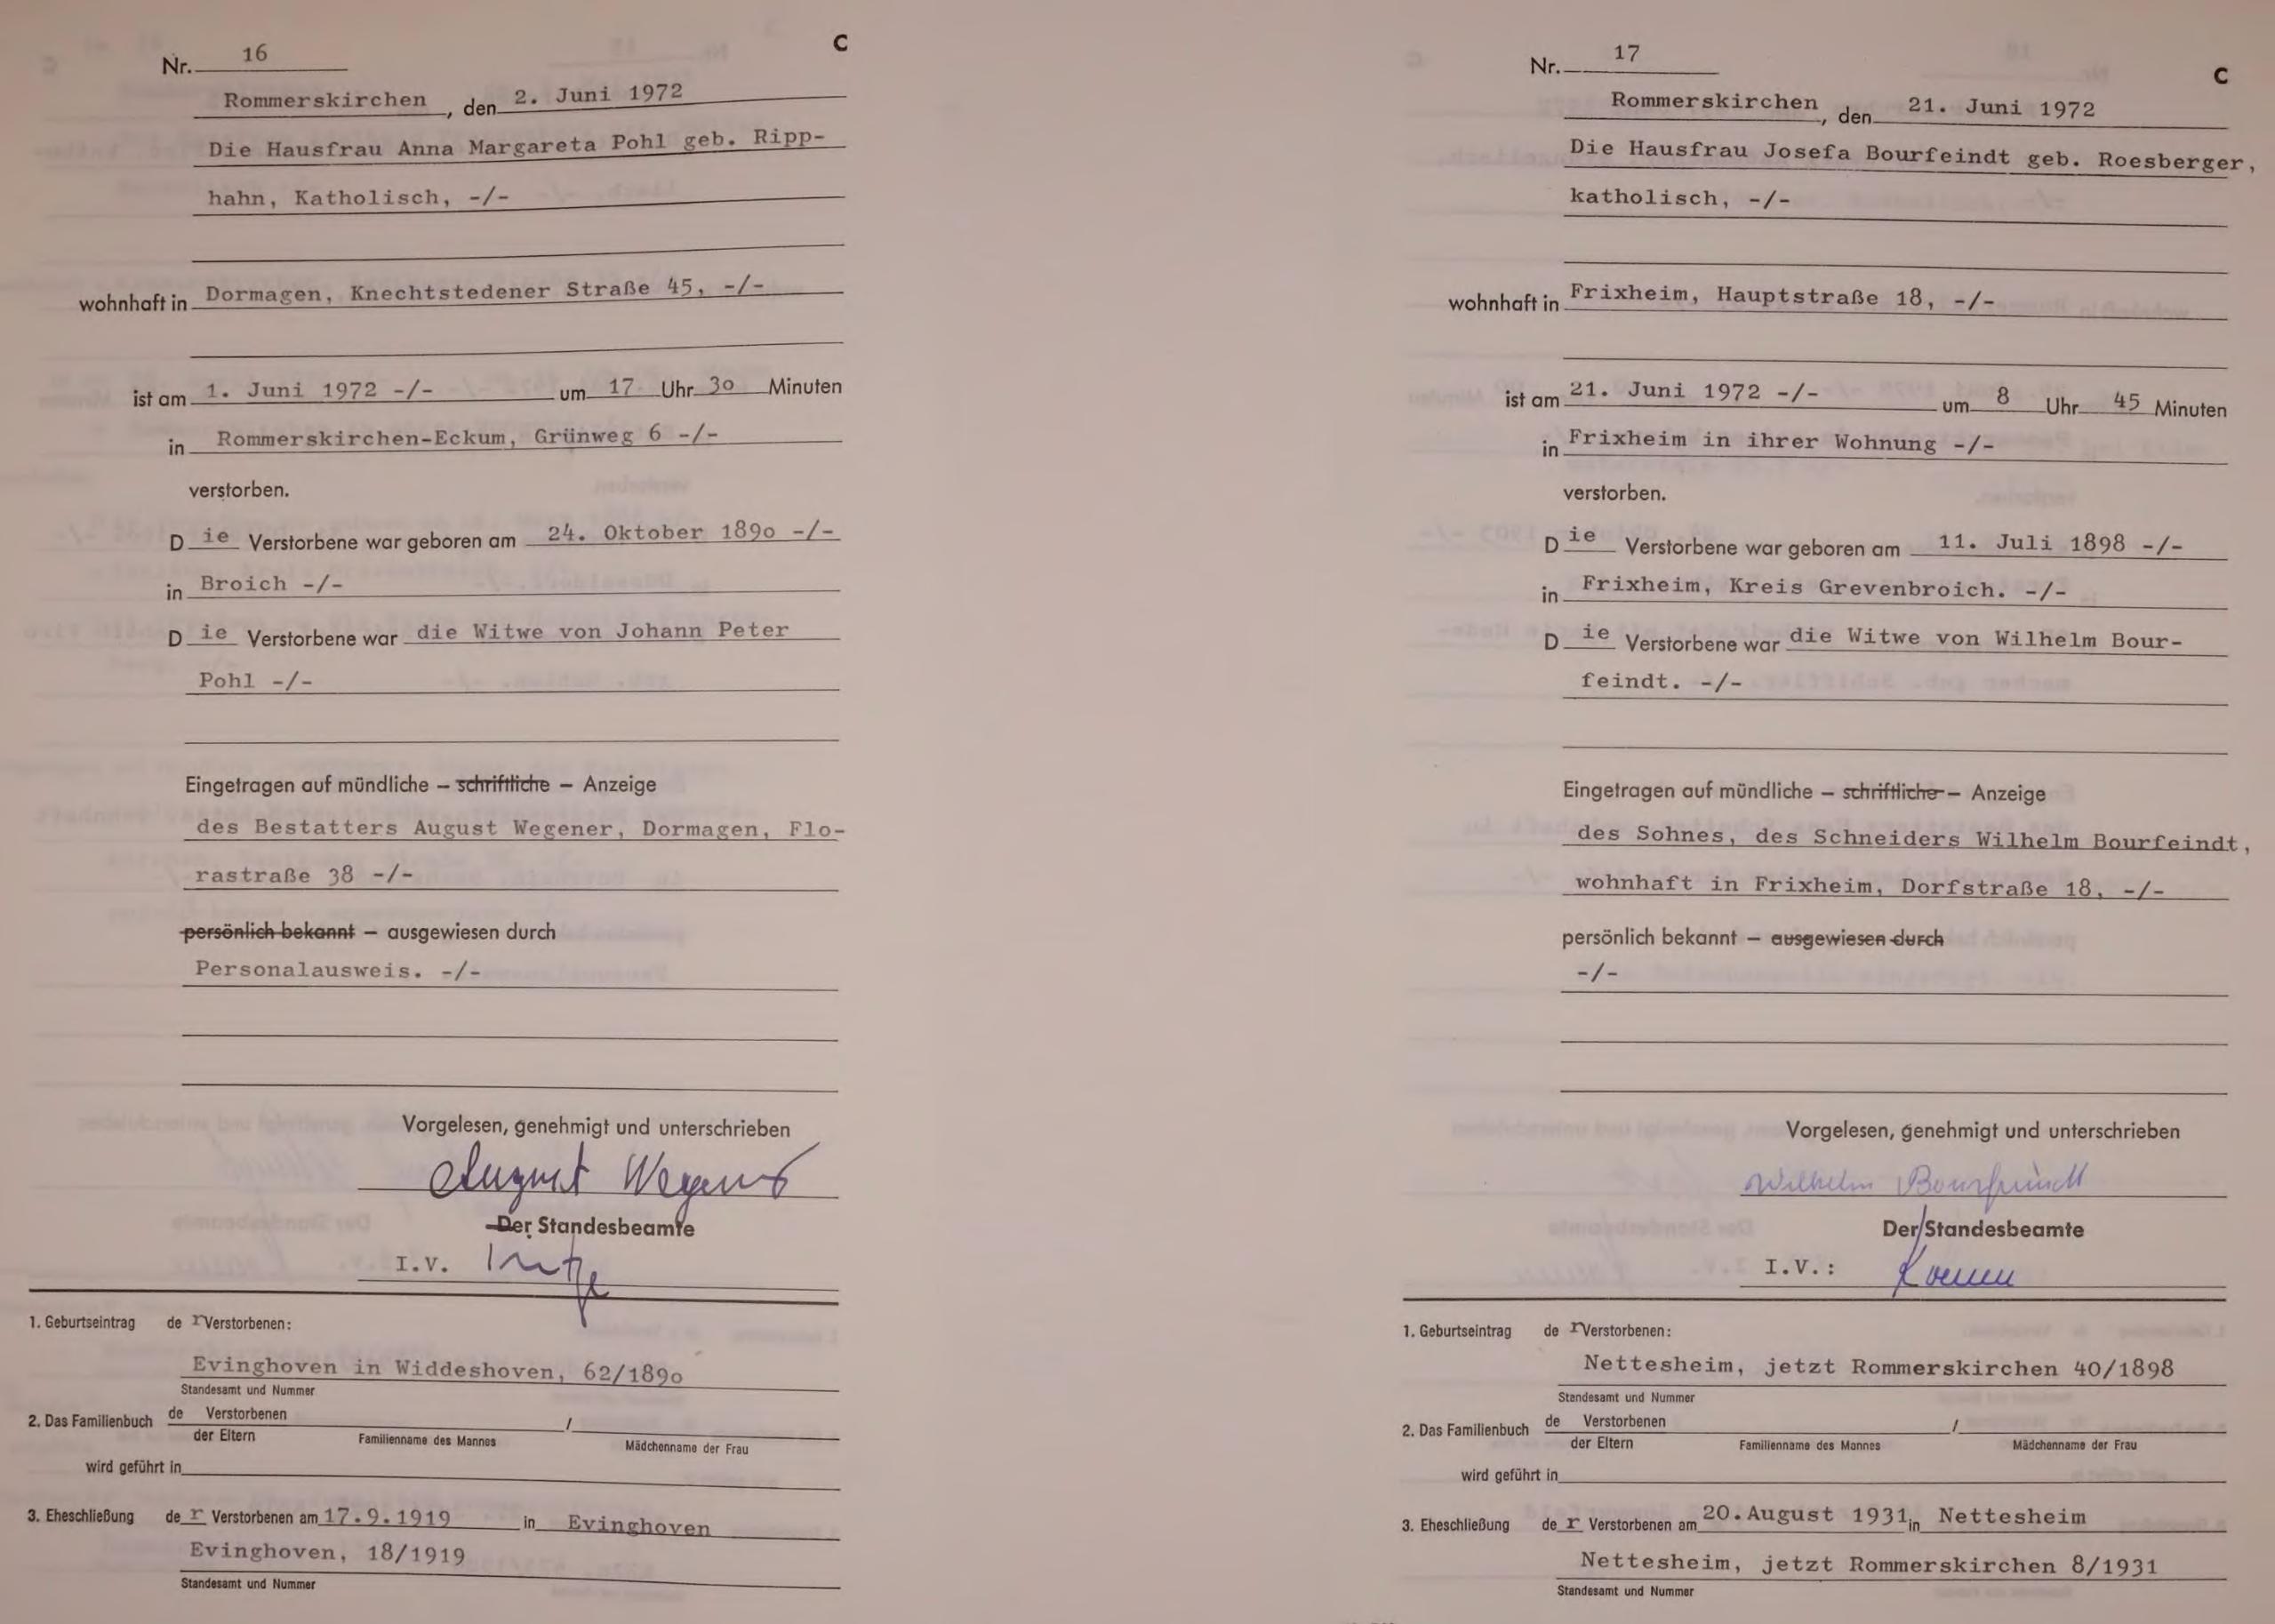 Nr. 16
C
Rommerskirchen, den 2. Juni 1972
Die Hausfrau Anna Margareta Pohl geb. Ripp-
hahn, Katholisch, -/-
wohnhaft in Dormagen, Knechtstedener Straße 45, -/-
ist am 1. Juni 1972 -/- um 17 Uhr 30 Minuten
in Rommerskirchen-Eckum, Grünweg 6 -/-
verstorben.
Die Verstorbene war geboren am 24. Oktober 1890 -/-
in Broich -/-
Die Verstorbene war die Witwe von Johann Peter
Pohl -/-
Eingetragen auf mündliche – schriftliche – Anzeige
des Bestatters August Wegener, Dormagen, Flo-
rastraße 38 -/-
persönlich bekannt – ausgewiesen durch
Personalausweis. -/-
Vorgelesen, genehmigt und unterschrieben
August Wegener
Der Standesbeamte
I.V.
1. Geburtseintrag der Verstorbenen:
Evinghoven in Widdeshoven, 62/1890
Standesamt und Nummer
2. Das Familienbuch de Verstorbenen /
der Eltern Familienname des Mannes Mädchenname der Frau
wird geführt in
3. Eheschließung der Verstorbenen am 17.9.1919 in Evinghoven
Evinghoven, 18/1919
Standesamt und Nummer
Nr. 17
C
Rommerskirchen, den 21. Juni 1972
Die Hausfrau Josefa Bourfeindt geb. Roesberger,
katholisch, -/-
wohnhaft in Frixheim, Hauptstraße 18, -/-
ist am 21. Juni 1972 -/- um 8 Uhr 45 Minuten
in Frixheim in ihrer Wohnung -/-
verstorben.
Die Verstorbene war geboren am 11. Juli 1898 -/-
in Frixheim, Kreis Grevenbroich. -/-
Die Verstorbene war die Witwe von Wilhelm Bour-
feindt. -/-
Eingetragen auf mündliche – schriftliche – Anzeige
des Sohnes, des Schneiders Wilhelm Bourfeindt,
wohnhaft in Frixheim, Dorfstraße 18, -/-
persönlich bekannt – ausgewiesen durch
-/-
Vorgelesen, genehmigt und unterschrieben
Wilhelm Bourfeindt
Der Standesbeamte
I.V.:
1. Geburtseintrag der Verstorbenen:
Nettesheim, jetzt Rommerskirchen 40/1898
Standesamt und Nummer
2. Das Familienbuch de Verstorbenen /
der Eltern Familienname des Mannes Mädchenname der Frau
wird geführt in
3. Eheschließung der Verstorbenen am 20. August 1931 in Nettesheim
Nettesheim, jetzt Rommerskirchen 8/1931
Standesamt und Nummer